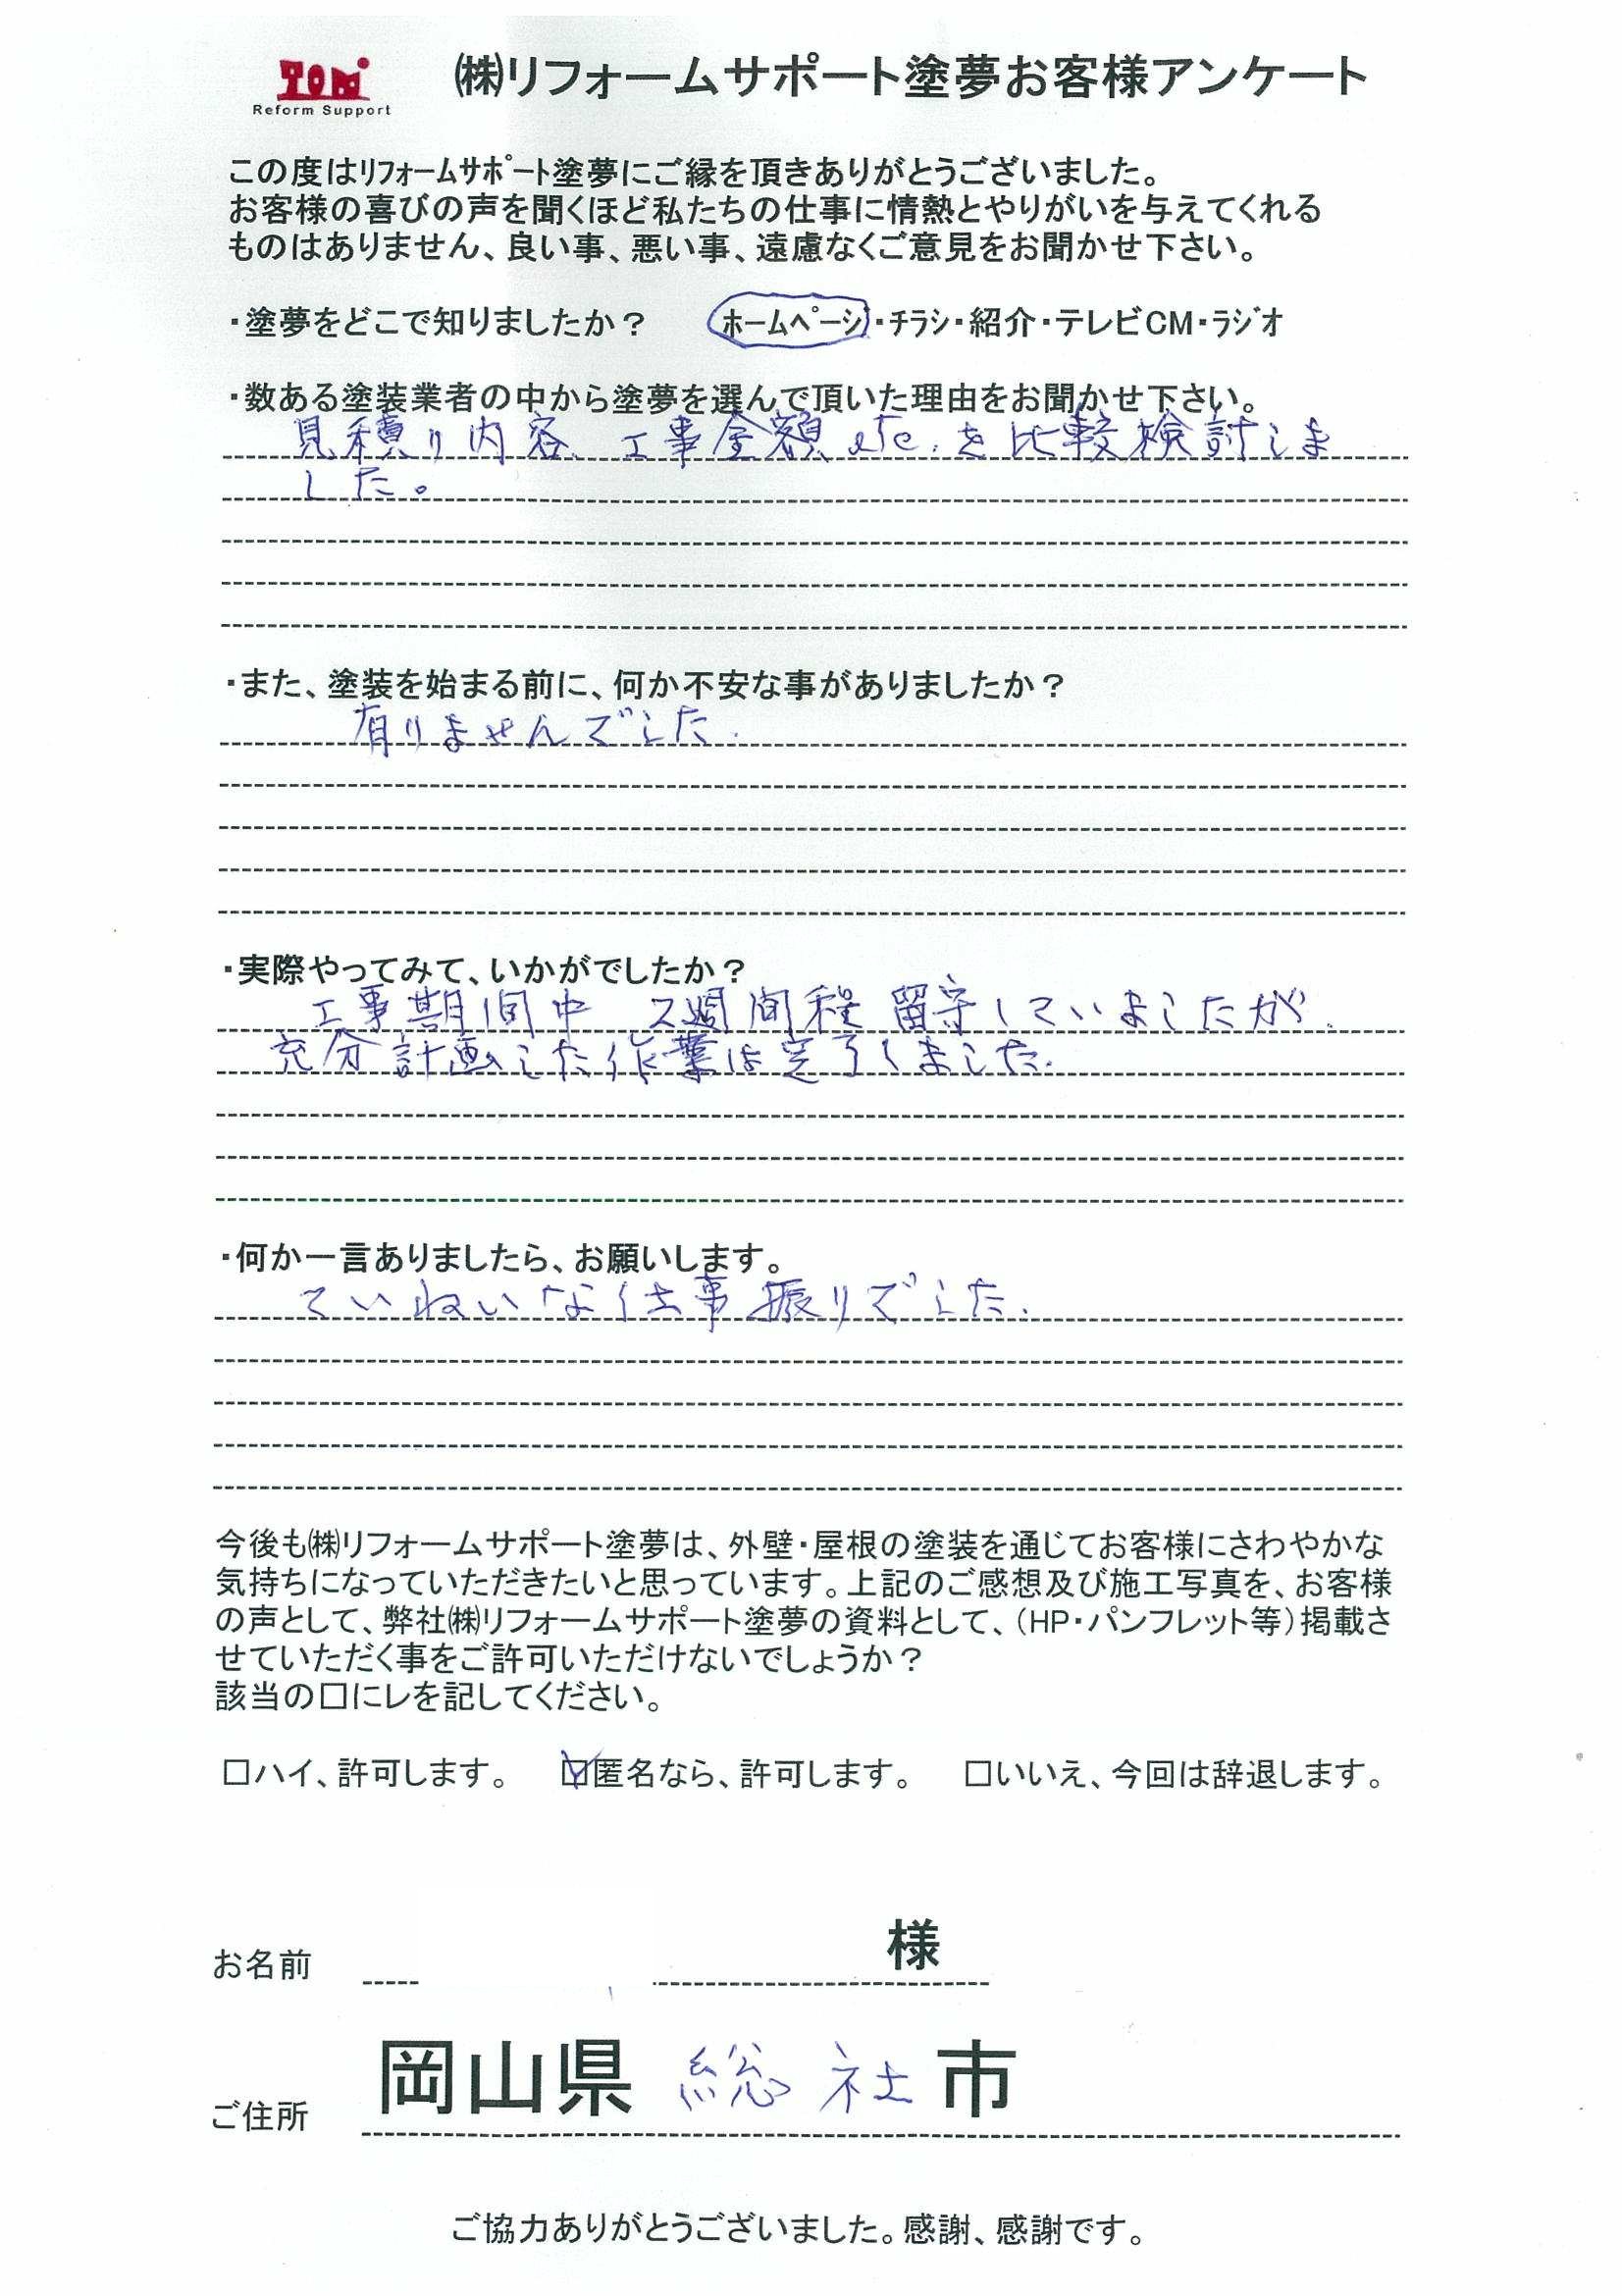 TOM
Reform Support
㈱リフォームサポート塗夢お客様アンケート
この度はﾘﾌｫｰﾑｻﾎﾟｰﾄ塗夢にご縁を頂きありがとうございました。
お客様の喜びの声を聞くほど私たちの仕事に情熱とやりがいを与えてくれる
ものはありません、良い事、悪い事、遠慮なくご意見をお聞かせ下さい。
・塗夢をどこで知りましたか？　ﾎｰﾑﾍﾟｰｼﾞ・ﾁﾗｼ・紹介・テレビCM・ﾗｼﾞｵ
・数ある塗装業者の中から塗夢を選んで頂いた理由をお聞かせ下さい。
見積り内容、工事金額etc.を比較検討しま
した。
・また、塗装を始まる前に、何か不安な事がありましたか？
有りませんでした.
・実際やってみて、いかがでしたか？
工事期間中　2週間程留守していましたが.
充分計画した作業は完了しました.
・何か一言ありましたら、お願いします。
ていねいな仕事振りでした.
今後も㈱リフォームサポート塗夢は、外壁・屋根の塗装を通じてお客様にさわやかな
気持ちになっていただきたいと思っています。上記のご感想及び施工写真を、お客様
の声として、弊社㈱リフォームサポート塗夢の資料として、（HP・パンフレット等）掲載さ
せていただく事をご許可いただけないでしょうか？
該当の□にレを記してください。
□ハイ、許可します。　☑匿名なら、許可します。　□いいえ、今回は辞退します。
お名前　様
ご住所　岡山県 総社市
ご協力ありがとうございました。感謝、感謝です。